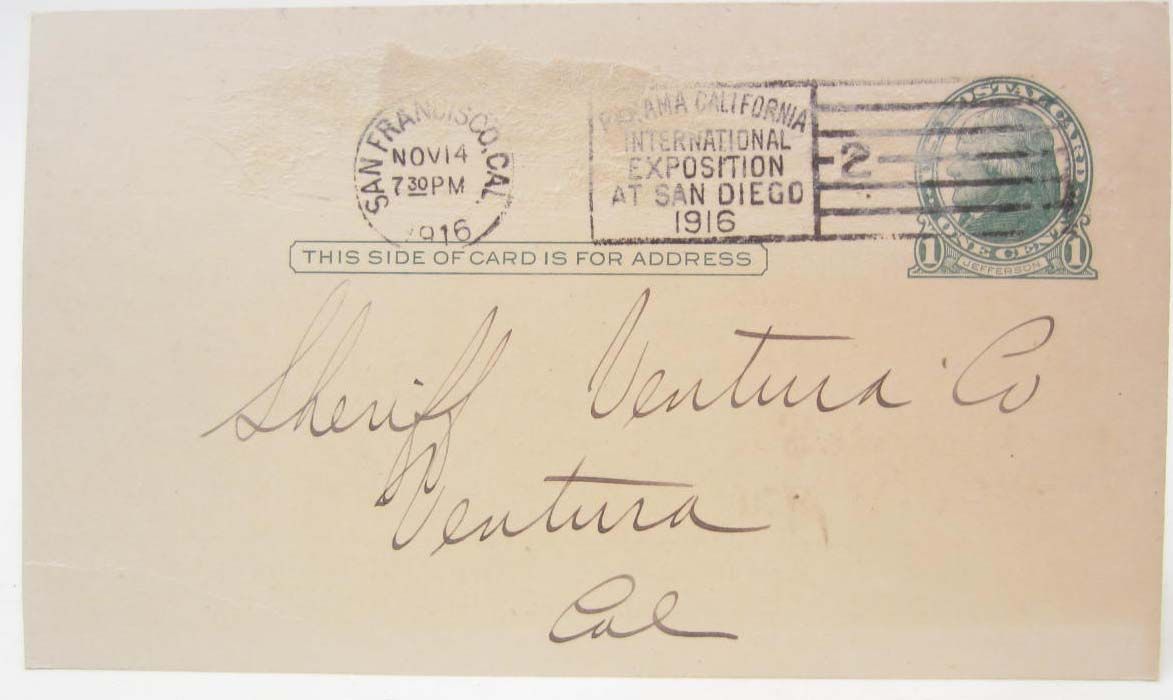 SAN FRANCISCO, CAL.
NOV 14
7 30 PM
1916
PANAMA CALIFORNIA
INTERNATIONAL
EXPOSITION
AT SAN DIEGO
1916
2
ONE CENT
1 JEFFERSON 1
THIS SIDE OF CARD IS FOR ADDRESS
Sheriff Ventura Co
Ventura
Cal